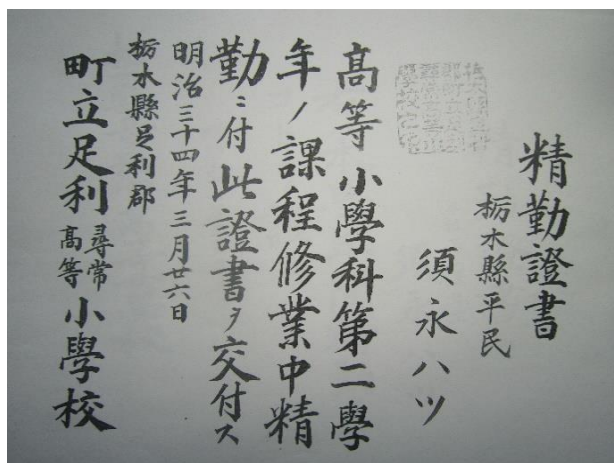 精勤證書
栃木縣平民
須永ハツ
高等小學科第二學
年ノ課程修業中精
勤ニ付此證書ヲ交付ス
明治三十四年三月廿六日
栃木縣足利郡
町立足利尋常高等小學校